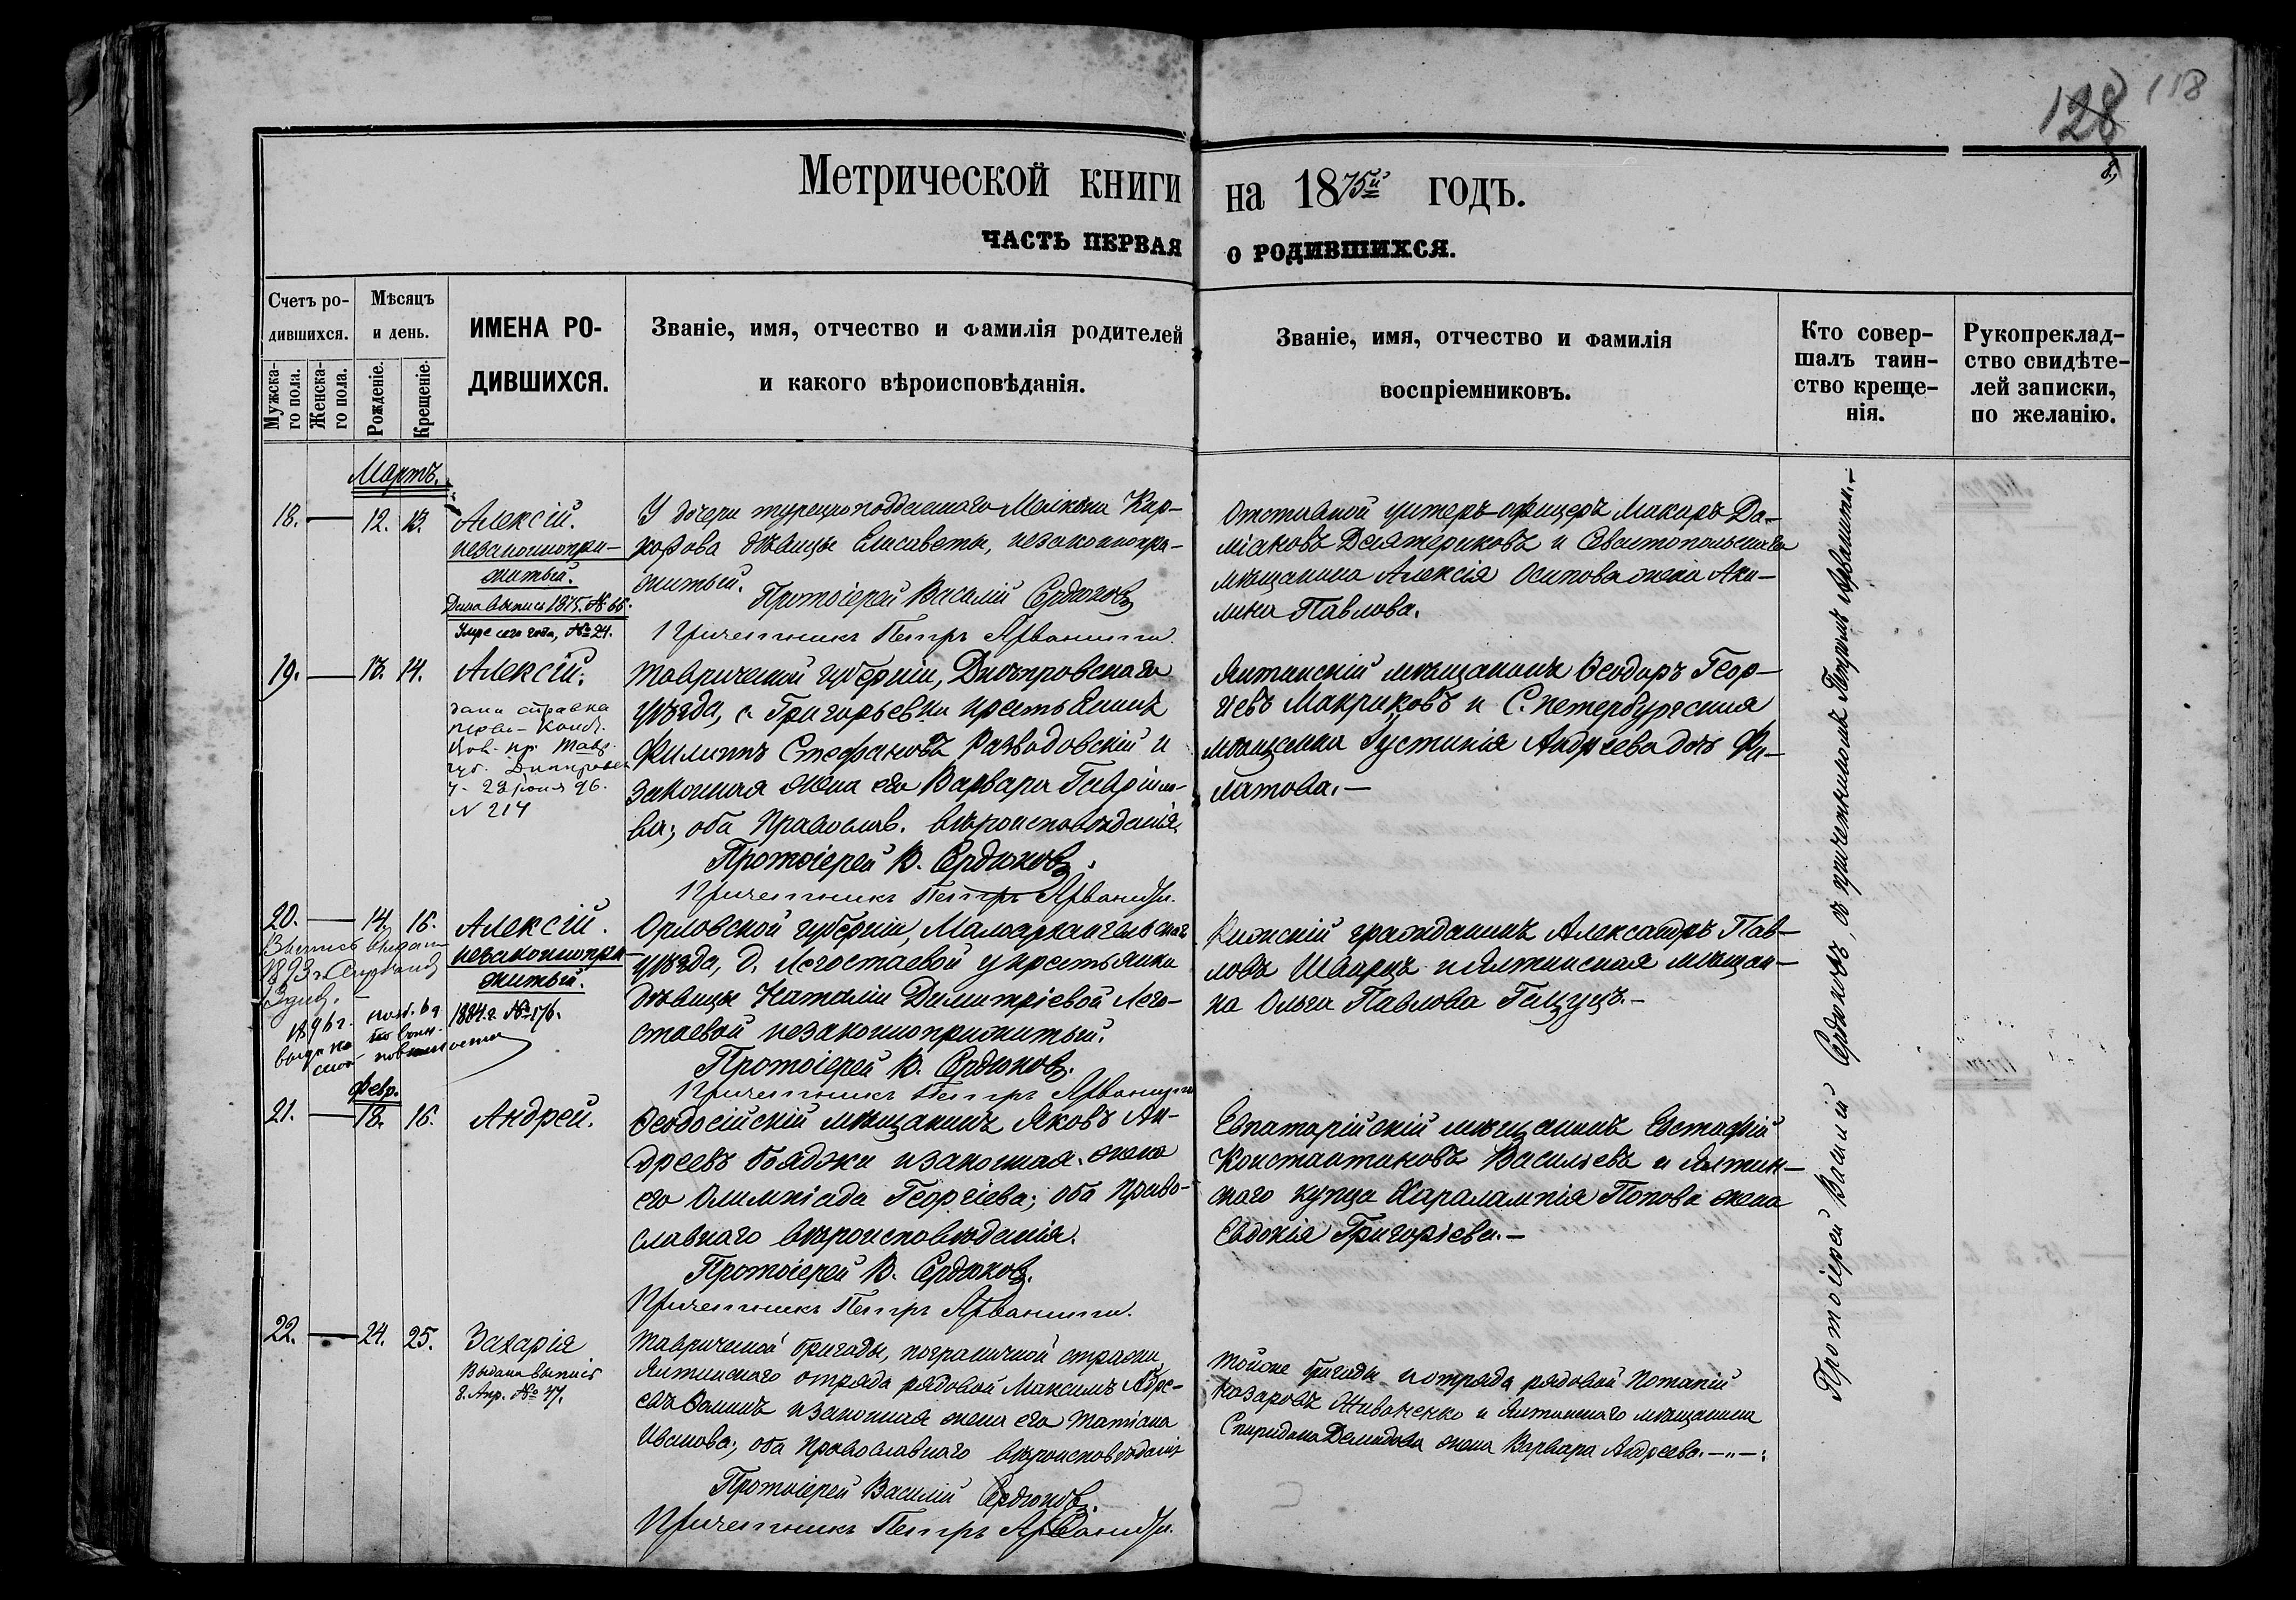 128 118
Метрической книги на 1875й годъ.
ЧАСТЬ ПЕРВАЯ О РОДИВШИХСЯ.
Счетъ ро-
дившихся.
Мужска-
го пола.
Женска-
го пола.
Мѣсяцъ
и день.
Рожденіе.
Крещеніе.
ИМЕНА РО-
ДИВШИХСЯ.
Званіе, имя, отчество и фамилія родителей
и какого вѣроисповѣданія.
Званіе, имя, отчество и фамилія
воспріемниковъ.
Кто совер-
шалъ таин-
ство креще-
нія.
Рукоприклад-
ство свидѣте-
лей записки,
по желанію.
Мартъ.
18. — 12. 13.
Алексій.
незаконнопри-
житый.
Дана выпись 1875. № 66.
Умре сего года, № 24.
У дочери турецкоподданнаго
дѣвицы Елисаветы, незаконнопри-
житый.
Протоіерей Василій Сердюковъ
Причетникъ Петръ Арванити.
Отставной унтеръ-офицеръ Макаръ Да-
міановъ Десятериковъ и Севастопольскаго
мѣщанина Алексія Осипова жена Аки-
лина Павлова.
19. — 13. 14.
Алексій.
дана справка
N 214
Таврической губерніи, Днѣпровскаго
уѣзда, с. Григорьевки крестьянинъ
Филиппъ Стефановъ Развадовскій и
законная жена его Варвара Гаврііло-
ва; оба Православ. вѣроисповѣданія.
Протоіерей В. Сердюковъ.
Причетникъ Петръ Арваниди.
Ялтинскій мѣщанинъ Ѳеодоръ Геор-
гіевъ Макриковъ и С. петербургская
мѣщанка Іустинія Андреева дочь Фи-
латова. —
20. — 14. 16.
Алексій.
незаконнопри-
житый.
1884 г. № 176.
Орловской губерніи, Малоархангельскаго
уѣзда, д. Легостаевой у крестьянки
дѣвицы Наталіи Димитріевой Лего-
стаевой незаконноприжитый.
Протоіерей В. Сердюковъ.
Причетникъ Петръ Арванити
гражданинъ Александръ Пав-
ловъ Шварцъ и Ялтинская мѣщан-
ка Ольга Павлова
Февр.
21. — 18. 16.
Андрей.
Ѳеодосійскій мѣщанинъ Яковъ Ан-
дреевъ Бояджи и законная жена
его Олимпіада Георгіева; оба Право-
славнаго вѣроисповѣданія.
Протоіерей В. Сердюковъ.
Причетникъ Петръ Арванити.
Евпаторійскій мѣщанинъ Евстафій
Константиновъ Васильевъ и Ялтин-
скаго купца Харалампія Попова жена
Евдокія Григоріева. —
22. — 24. 25.
Захарія
Выдана выпись
8. Апр. № 47.
Таврической бригады, пограничной стражи,
Ялтинскаго отряда рядовой Максимъ Андре-
евъ и законная жена его Татіана
Иванова; оба Православнаго вѣроисповѣданія
Протоіерей Василій Сердюковъ.
Причетникъ Петръ Арваниди.
Тойже бригады и отряда рядовой Потапій
Назаровъ Живаненко и Ялтинскаго мѣщанина
Спиридона Демидова жена Варвара Андреева.
Протоіерей Василій Сердюковъ, съ причетникомъ Петромъ Арванити. —